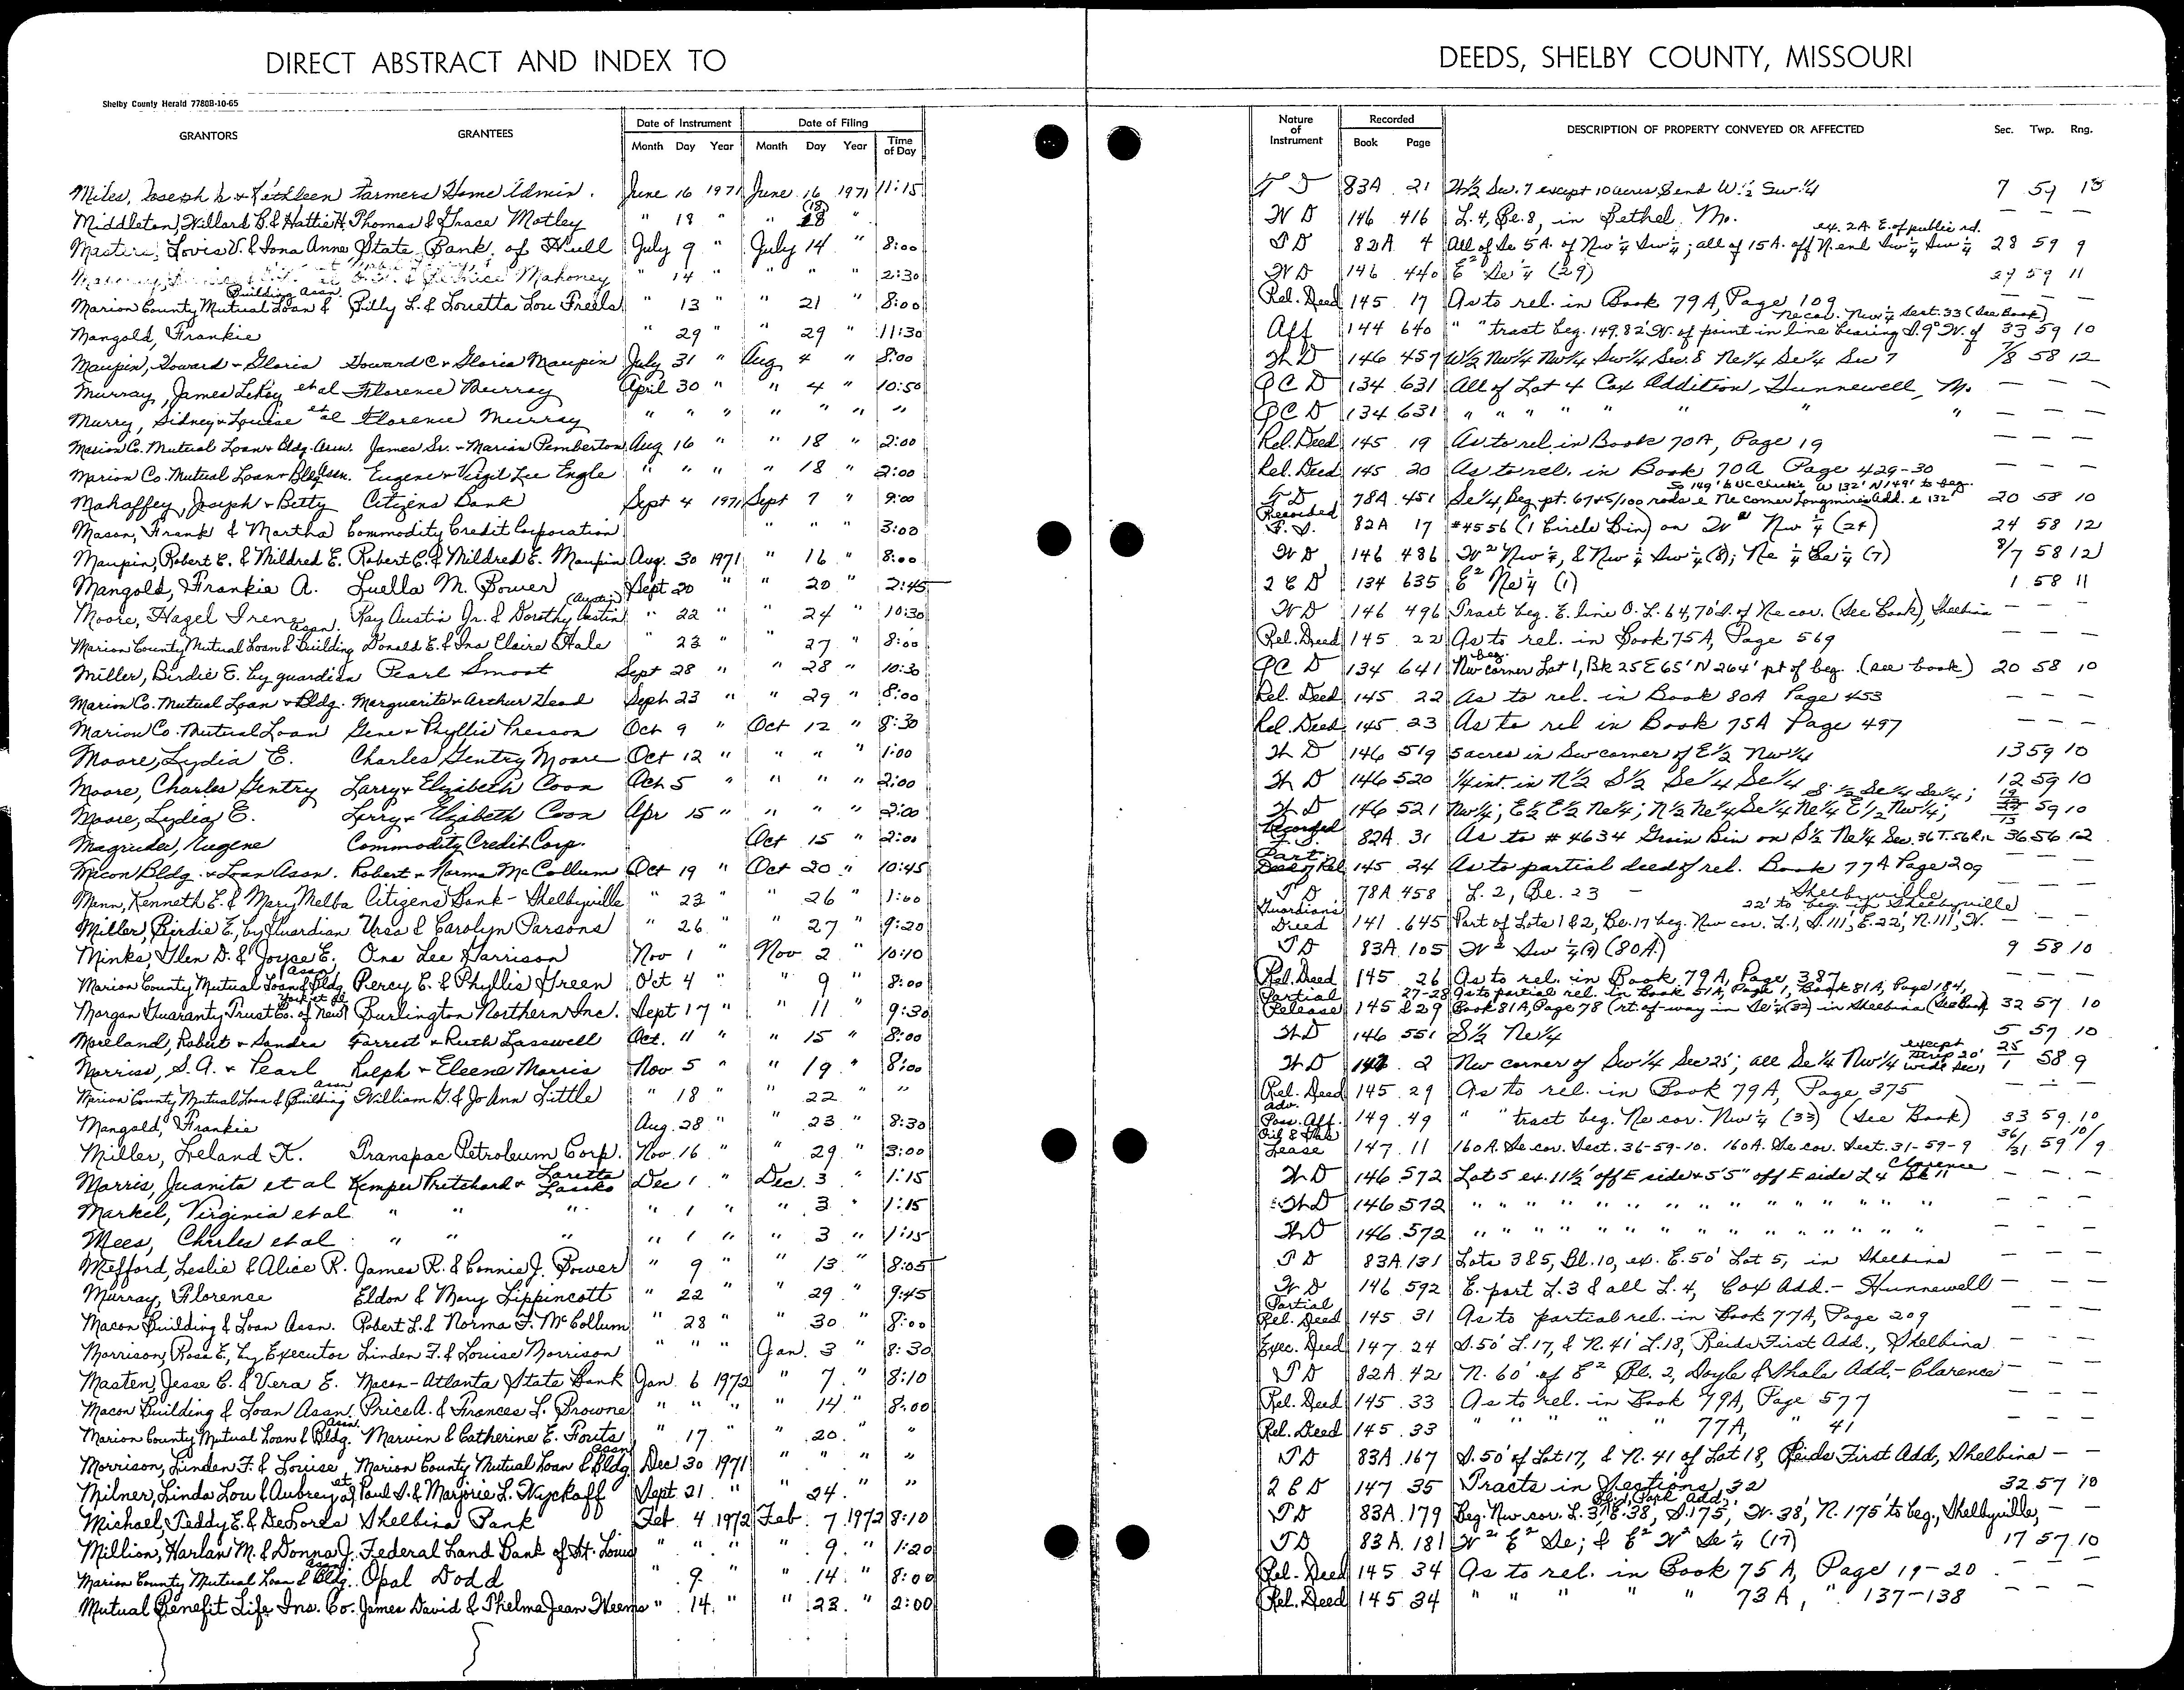 DIRECT ABSTRACT AND INDEX TO DEEDS, SHELBY COUNTY, MISSOURI
Shelby County Herald 7780B-10-65
GRANTORS GRANTEES Date of Instrument Date of Filing Time of Day Nature of Instrument Recorded DESCRIPTION OF PROPERTY CONVEYED OR AFFECTED Sec. Twp. Rng.
Month Day Year Month Day Year Book Page
Miles, Joseph & Kathleen Farmers Home Admin. June 16 1971 June 16 1971 11:15 T D 83A 21 W½ Sw. 7 except 10 acres S end W.½ Sw ¼ 7 59
Middleton, Willard B. & Hattie H. Thomas & Grace Motley " 18 " " 18 (18) " W D 146 416 L. 4, Be. 8, in Bethel, Mo. — — —
Lovis V. & Iona Anne State Bank of Hull July 9 " July 14 " 8:00 T D 82A 4 All of Se 5 A. of Nw ¼ Sw ¼; all of 15 A. off N. end Sw ¼ Sw ¼ ex. 2A E. of public rd. 28 59 9
Mahoney " 14 " " " " 2:30 W D 146 440 E² Se ¼ (29) 29 59 11
Marion County Mutual Loan & Building Assn. Billy L. & Louetta Lou Freels " 13 " 21 " 8:00 Rel. Deed 145 17 As to rel. in Book 79A, Page 109 — — —
Mangold, Frankie " 29 " " 29 " 11:30 Aff 144 640 " " tract beg. 149.82' W. of point in line bearing S. 9° W. of Ne cor. Nw ¼ Sect. 33 (See Book) 33 59 10
Maupin, Howard & Gloria Howard C & Gloria Maupin July 31 " Aug 4 " 8:00 W D 146 457 W½ Nw¼ Nw¼ Sw¼ Sec. 8 Ne¼ Se¼ Sec 7 7/8 58 12
Murray, James LeRoy et al Florence Murray April 30 " " 4 " 10:50 Q C D 134 631 All of Lot 4 Cox Addition, Hunnewell, Mo — — —
Murry, Sidney & Louise et al Florence Murray " " " " " " " Q C D 134 631 " " " " " " " " — — —
Marion Co. Mutual Loan & Bldg. Assn. James Sr. & Marian Pemberton Aug 16 " " 18 " 2:00 Rel. Deed 145 19 As to rel. in Book 70A, Page 19 — — —
Marion Co. Mutual Loan & Bldg Assn. Eugene & Virgil Lee Engle " " " " 18 " 2:00 Rel. Deed 145 20 As to rel. in Book 70A Page 429-30 — — —
Mahaffey, Joseph & Betty Citizens Bank Sept 4 1971 Sept 7 " 9:00 T D 78A 451 Se¼, Beg. pt. 67+5/100 rods e Ne corner Longmires Add. e 132' W 132' N 149' to beg. 20 58 10
Mason, Frank & Martha Commodity Credit Corporation " " " 3:00 Recorded F. S. 82A 17 #4556 (1 Circle Bin) on W² Nw ¼ (24) 24 58 12
Maupin, Robert C. & Mildred E. Robert C. & Mildred E. Maupin Aug. 30 1971 " 16 " 8:00 W D 146 486 W² Nw ¼, & Nw ¼ Sw ¼ (8); Ne ¼ Se ¼ (7) 8/7 58 12
Mangold, Frankie A. Luella M. Bower Sept 20 " " 20 " 2:45 2 C D 134 635 E² Ne ¼ (1) 1 58 11
Moore, Hazel Irene Ray Austin Jr. & Dorothy Austin (Austin) " 22 " " 24 " 10:30 W D 146 496 Tract beg. E. line O. L. 64, 70' S. of Ne cor. (See Book), Shelbina — — —
Marion County Mutual Loan & Building Assn. Donald E. & Ina Claire Hale " 23 " " 27 " 8:00 Rel. Deed 145 22 As to rel. in Book 75A, Page 569
Miller, Birdie E. by guardian Pearl Smoot Sept 28 " " 28 " 10:30 Q C D 134 641 beg. Nw corner Lot 1, Bk 25 E 65' N 264' pt of beg. (see book) 20 58 10
Marion Co. Mutual Loan & Bldg. Marguerite & Arthur Head Sept 23 " " 29 " 8:00 Rel. Deed 145 22 As to rel. in Book 80A Page 453 — — —
Marion Co. Mutual Loan Gene & Phyllis Preson Oct 9 " Oct 12 " 8:30 Rel. Deed 145 23 As to rel in Book 75A Page 497 — — —
Moore, Lydia E. Charles Gentry Moore Oct 12 " " " " 1:00 W D 146 519 5 acres in Sw corner of E½ Nw¼ 13 59 10
Moore, Charles Gentry Larry & Elizabeth Coon Oct 5 " " " " 2:00 W D 146 520 ¼ int. in N½ S½ Se¼ Se¼ 12 59 10
Moore, Lydia E. Larry & Elizabeth Coon Apr 15 " " " " 2:00 W D 146 521 Nw¼; E½ E½ Ne¼; N½ Ne¼ Se¼ Ne¼ E½ Nw¼; S ½ Se¼ Se¼; 59 10
Magruder, Eugene Commodity Credit Corp. Oct 15 " 2:00 Recorded F. S. 82A 31 As to # 4634 Grain Bin on S½ Ne¼ Sec. 36 T. 56 R. 12 36 56 12
Macon Bldg. & Loan Assn. Robert & Norma McCollum Oct 19 " Oct 20 " 10:45 Part. Deed of Rel 145 24 As to partial deed of rel. Book 77A Page 209 — — —
Menn, Kenneth E. & Mary Melba Citizens Bank - Shelbyville " 23 " " 26 " 1:00 T D 78A 458 L. 2, Be. 23 - Shelbyville — — —
Miller, Birdie E., by Guardian Ursa & Carolyn Parsons " 26 " " 27 " 9:20 Guardian's Deed 141 645 Part of Lots 1 & 2, Be. 17 beg. Nw cor. L. 1, S. 111', E. 22', N. 111', W. 22' to beg. in Shelbyville — — —
Minks, Glen D. & Joyce E. Ona Lee Harrison Nov 1 " Nov 2 " 10:10 T D 83A 105 W² Sw ¼ (9) (80A.) 9 58 10
Marion County Mutual Loan & Bldg. Assn. Percy E. & Phyllis Green Oct 4 " " 9 " 8:00 Rel. Deed 145 26 As to rel. in Book 79A, Page 387 — — —
Morgan Guaranty Trust Co. of New York et al Burlington Northern Inc. Sept 17 " " 11 " 9:30 Partial Release 145 27-28 & 29 As to partial rel. in Book 51A, Page 1, Book 81A, Page 184, Book 81A, Page 78 (rt. of-way in Se¼ (32) in Shelbina (See Book) 32 57 10
Moreland, Robert & Sandra Forrest & Ruth Lasswell Oct. 11 " " 15 " 8:00 W D 146 551 S½ Ne¼ 5 57 10
Morriss, S. A. & Pearl Ralph & Eleene Morris Nov 5 " " 19 " 8:00 W D 2 Nw corner of Sw ¼ Sec 25'; all Se ¼ Nw ¼ except strip 20' wide Sec. 1 25/1 58 9
Marion County Mutual Loan & Building Assn William G. & Jo Ann Little " 18 " " 22 " " Rel. Deed 145 29 As to rel. in Book 79A, Page 375 — — —
Mangold, Frankie Aug. 28 " " 23 " 8:30 Adv. Poss. Aff. 149 49 " " tract beg. Ne cor. Nw ¼ (33) (See Book) 33 59 10
Miller, Leland K. Transpac Petroleum Corp. Nov. 16 " " 29 " 3:00 Oil & Gas Lease 147 11 160 A. Se cor. Sect. 36-59-10. 160 A. Se cor. Sect. 31-59-9 36/31 59 10/9
Morris, Juanita et al Kemper Pritchard & Loretta Lasiko Dec 1 " Dec. 3 " 1:15 W D 146 572 Lot 5 ex. 11½' off E side & 5'5" off E side L 4 Bk 11 Clarence — — —
Markel, Virginia et al " " " " 1 " " 3 " 1:15 W D 146 572 " " " " " " " " " " " — — —
Mees, Charles et al " " " " 1 " " 3 " 1:15 W D 146 572 " " " " " " " " " " " — — —
Mefford, Leslie & Alice R. James R. & Connie J. Power " 9 " " 13 " 8:05 T D 83A 131 Lots 3 & 5, Bl. 10, ex. E. 50' Lot 5, in Shelbina — — —
Murray, Florence Eldon & Mary Lippincott " 22 " " 29 " 9:45 W D 146 592 E. part L. 3 & all L. 4, Cox Add. - Hunnewell — — —
Macon Building & Loan Assn. Robert L. & Norma F. McCollum " 28 " " 30 " 8:00 Partial Rel. Deed 145 31 As to partial rel. in Book 77A, Page 209 — — —
Morrison, Rosa E., by Executor Linden F. & Louise Morrison " " " Jan. 3 " 8:30 Exec. Deed 147 24 S. 50' L. 17, & N. 41' L. 18, Reids First Add., Shelbina — — —
Masten, Jesse C. & Vera E. Macon-Atlanta State Bank Jan. 6 1972 " 7 " 8:10 T D 82A 42 N. 60' of E² Bl. 2, Doyle & Shale Add. - Clarence — — —
Macon Building & Loan Assn. Price A. & Frances L. Browne " " " " 14 " 8:00 Rel. Deed 145 33 As to rel. in Book 79A, Page 577 — — —
Marion County Mutual Loan & Bldg. Assn. Marvin & Catherine E. Fouts " 17 " " 20 " " Rel. Deed 145 33 " " " " " 77A, " 41 — — —
Morrison, Linden F. & Louise Marion County Mutual Loan & Bldg Assn Dec 30 1971 " " " " T D 83A 167 S. 50' of Lot 17, & N. 41 of Lot 18, Reids First Add, Shelbina — —
Milner, Linda Lou & Aubrey et al Paul S. & Marjorie L. Wyckoff Sept. 21 " " 24 " " 2 C D 147 35 Tracts in Sections 32 32 57 10
Michael, Teddy E. & DeLores Shelbina Bank Feb 4 1972 Feb. 7 1972 8:10 T D 83A 179 Beg. Nw cor. L. 3, E. 38', S. 175', W. 38', N. 175' to beg., Park Add, Shelbyville, — —
Million, Harlan M. & Donna J. Federal Land Bank of St. Louis " " " " 9 " 1:20 T D 83A 181 W² E² Se; & E² W² Se ¼ (17) 17 57 10
Marion County Mutual Loan & Bldg. Assn. Opal Dodd " 9 " " 14 " 8:00 Rel. Deed 145 34 As to rel. in Book 75A, Page 19-20 — — —
Mutual Benefit Life Ins. Co. James David & Thelma Jean Weems " 14 " " 23 " 2:00 Rel. Deed 145 34 " " " " " 73A, " 137-138 — — —